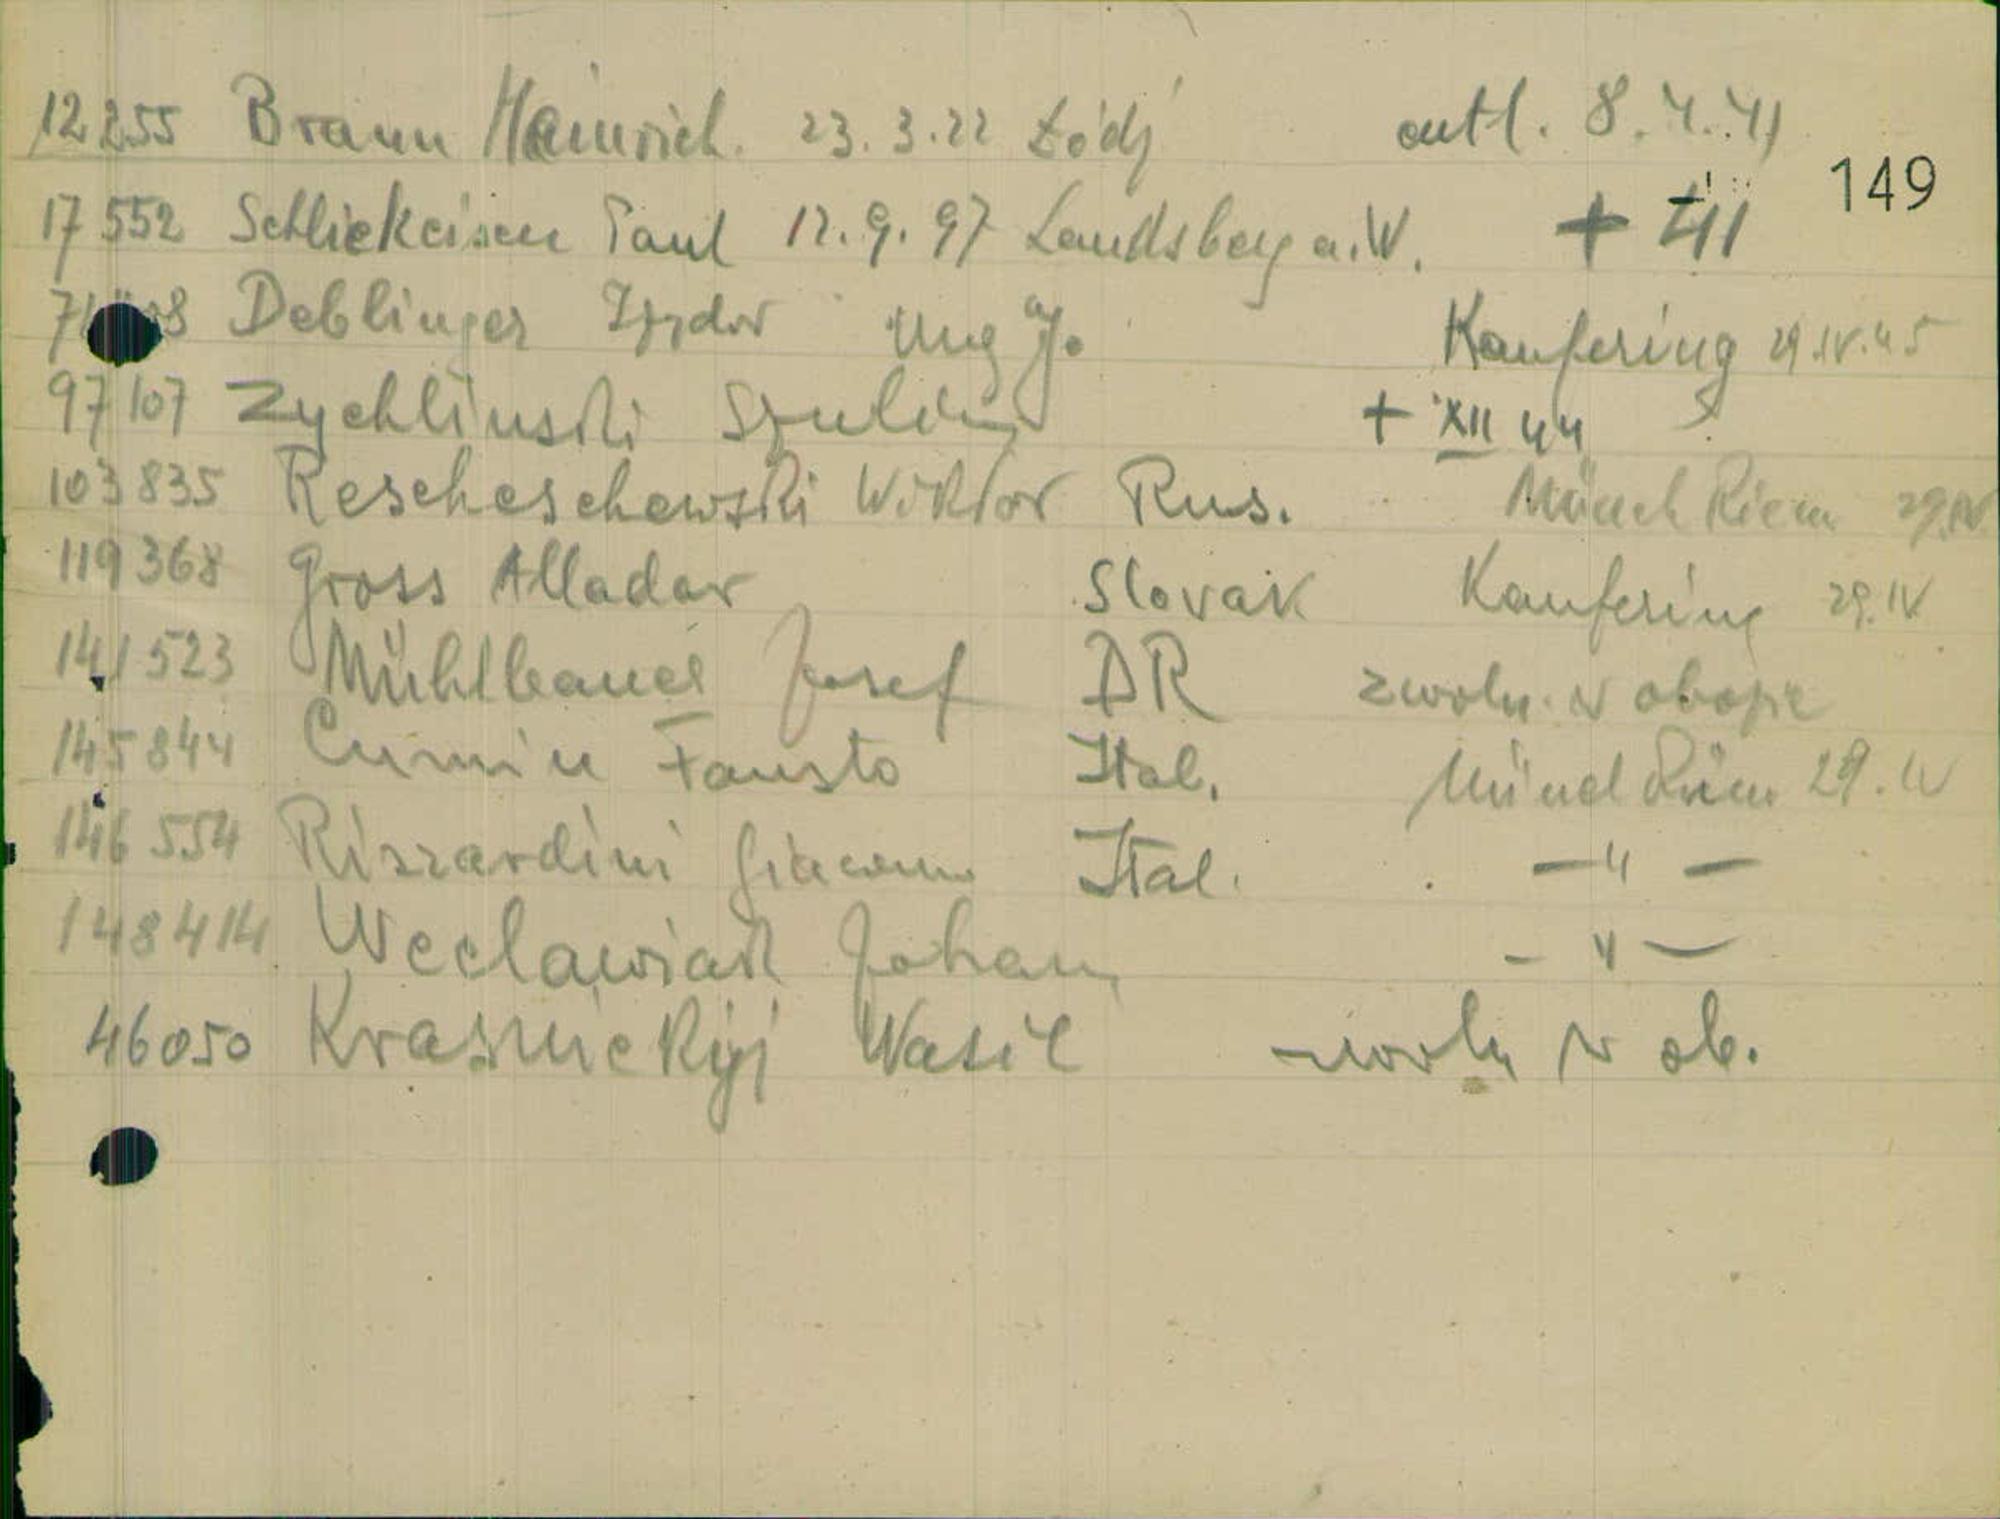 12255 Braun Heinrich. 23.3.22 Łódź entl. 8.4.41
149
17552 Schliekeisen Paul 12.9.97 Landsberg a.W. + 41
Deblinger Izydor Ung J. Kaufering 29.IV.45
97107 Zychlinski Szulim + XII 44
103835 Rescheschewski Wiktor Rus. Münch Riem 29.IV
119368 Gross Alladar Slovak Kaufering 29.IV
141523 Mühlbauer Josef DR zwoln. w obozie
145844 Cumin Fausto Ital. Münch Riem 29.IV
146554 Rizzardini Giacomo Ital. — " —
148414 Weclawiak Johann - " —
46050 Krasnickyj Wasil zwoln w ob.